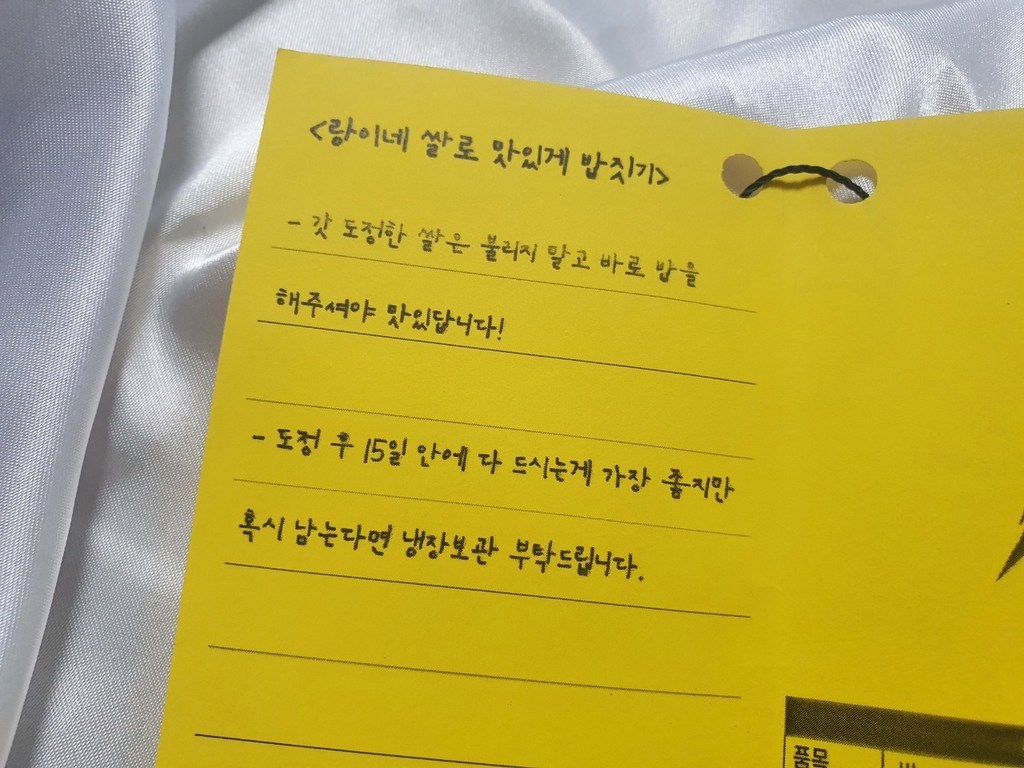 <랑이네 쌀로 맛있게 밥짓기>
- 갓 도정한 쌀은 불리지 말고 바로 밥을
해주셔야 맛있답니다!
- 도정 후 15일 안에 다 드시는게 가장 좋지만
혹시 남는다면 냉장보관 부탁드립니다.
품목